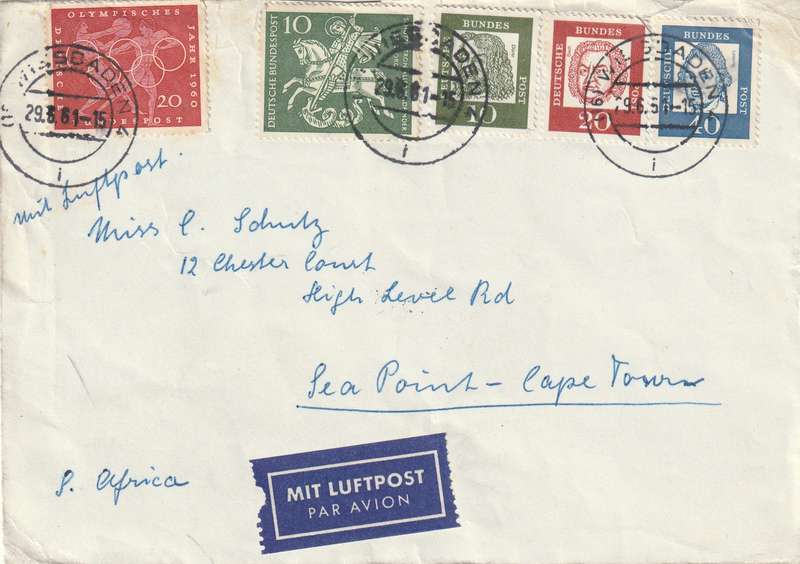 OLYMPISCHES JAHR 1960
20
DEUTSCHE BUNDESPOST
10
DEUTSCHE BUNDESPOST
BUNDES
POST
10
DEUTSCHE
BUNDES
POST
20
DEUTSCHE
BUNDES
POST
40
WIESBADEN
29.8.61-15
i
WIESBADEN
29.8.61-15
i
WIESBADEN
29.8.61-15
i
mit Luftpost.
Miss C. Schutz
12 Chester Court
High Level Rd
Sea Point - Cape Town
S. Africa
MIT LUFTPOST
PAR AVION